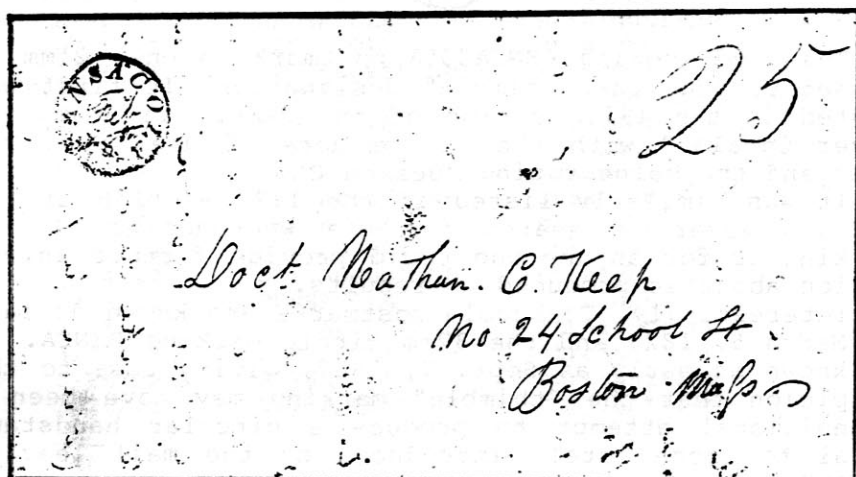 NSACO
25
Doct. Nathan. C Keep
No 24 School St
Boston Mass